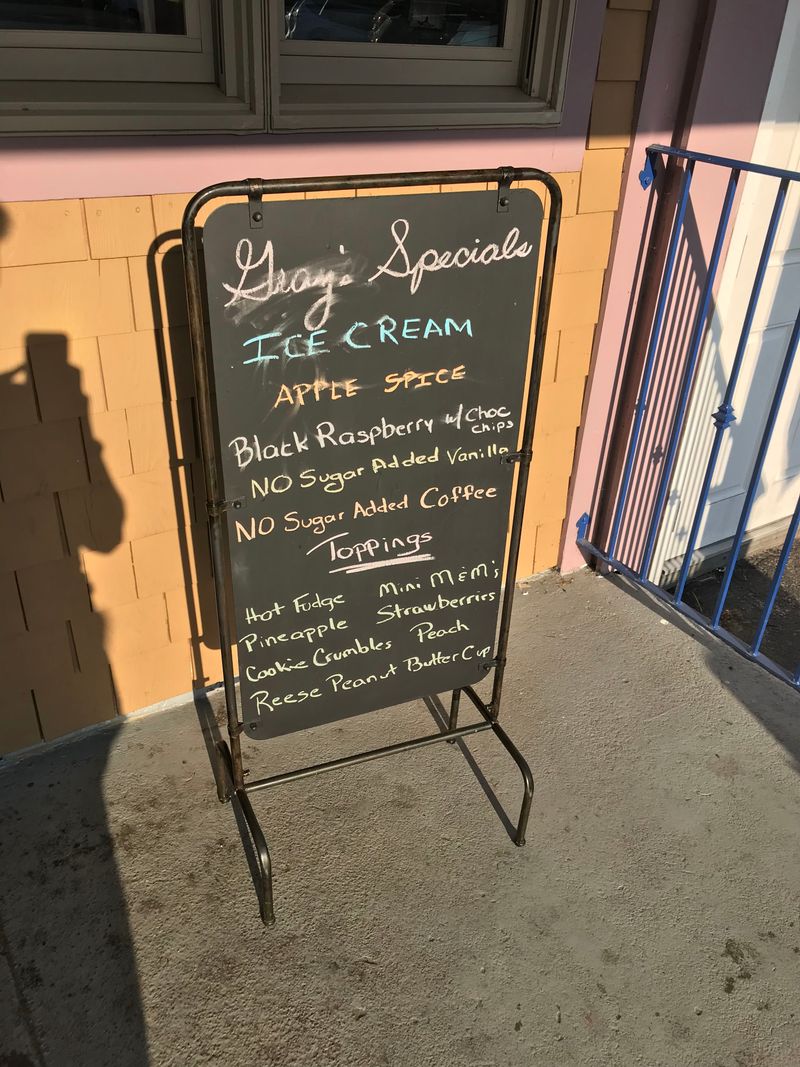 Gray's Specials
ICE CREAM
APPLE SPICE
Black Raspberry w/ Choc chips
NO Sugar Added Vanilla
NO Sugar Added Coffee
Toppings
Hot Fudge Mini M&M's
Pineapple Strawberries
Cookie Crumbles Peach
Reese Peanut Butter Cup